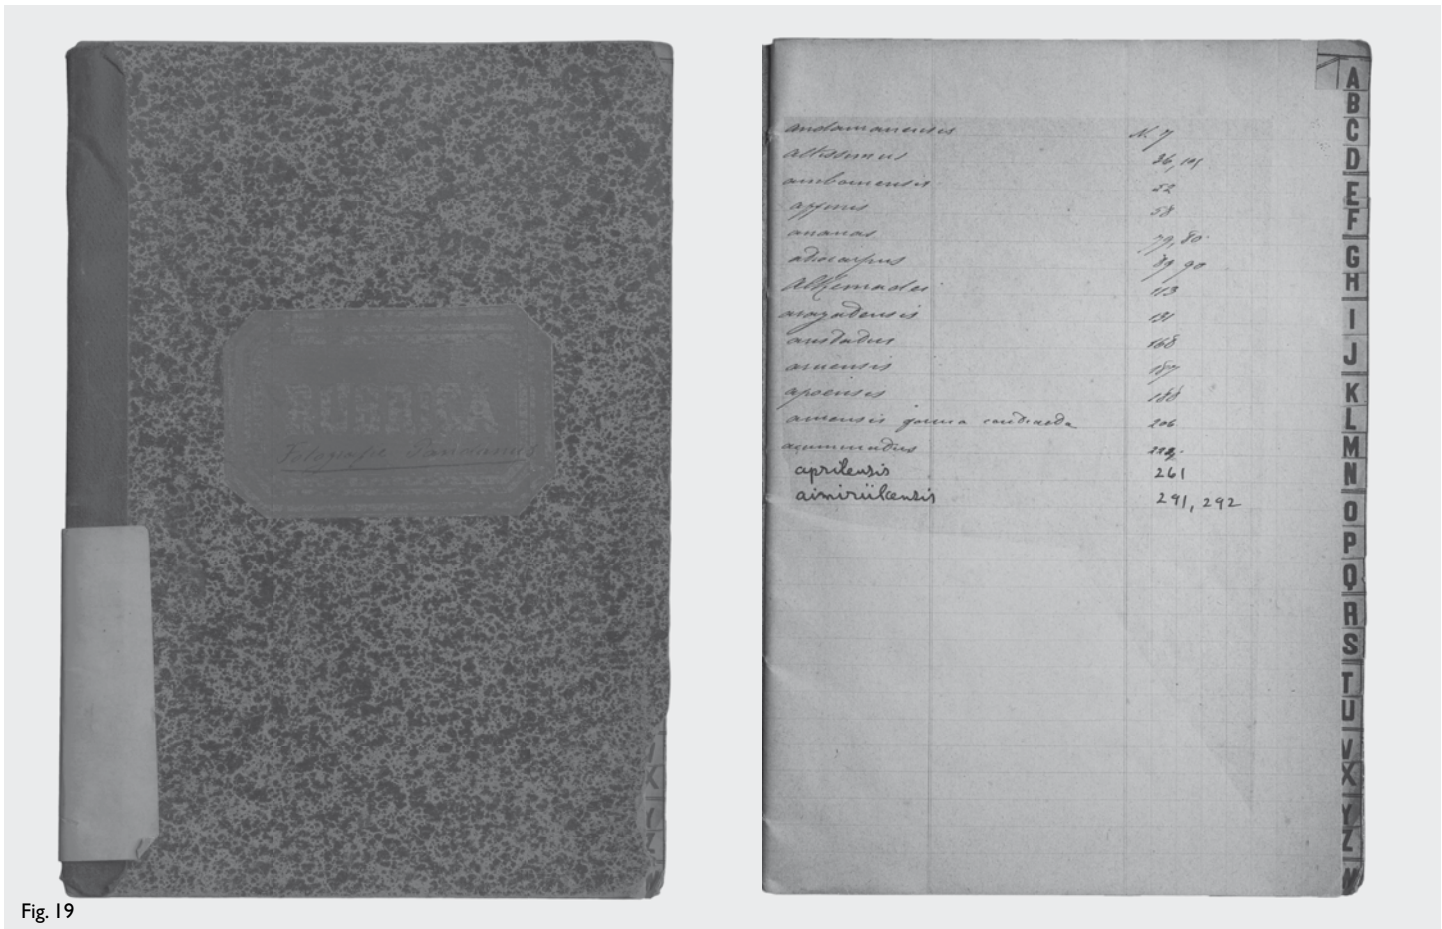 RUBRICA
Fotografie Pandanus
andamanensis N. 7
altissimus 36, 101
amboinensis 52
affinis 58
ananas 79, 80
adiocarpus 89, 90
Alkemadei 113
131
168
aruensis 187
apoensis 188
forma 206
accuminatus
aprilensis 261
aimiriikensis 291, 292
A
B
C
D
E
F
G
H
I
J
K
L
M
N
O
P
Q
R
S
T
U
V
X
Y
Z
Fig. 19